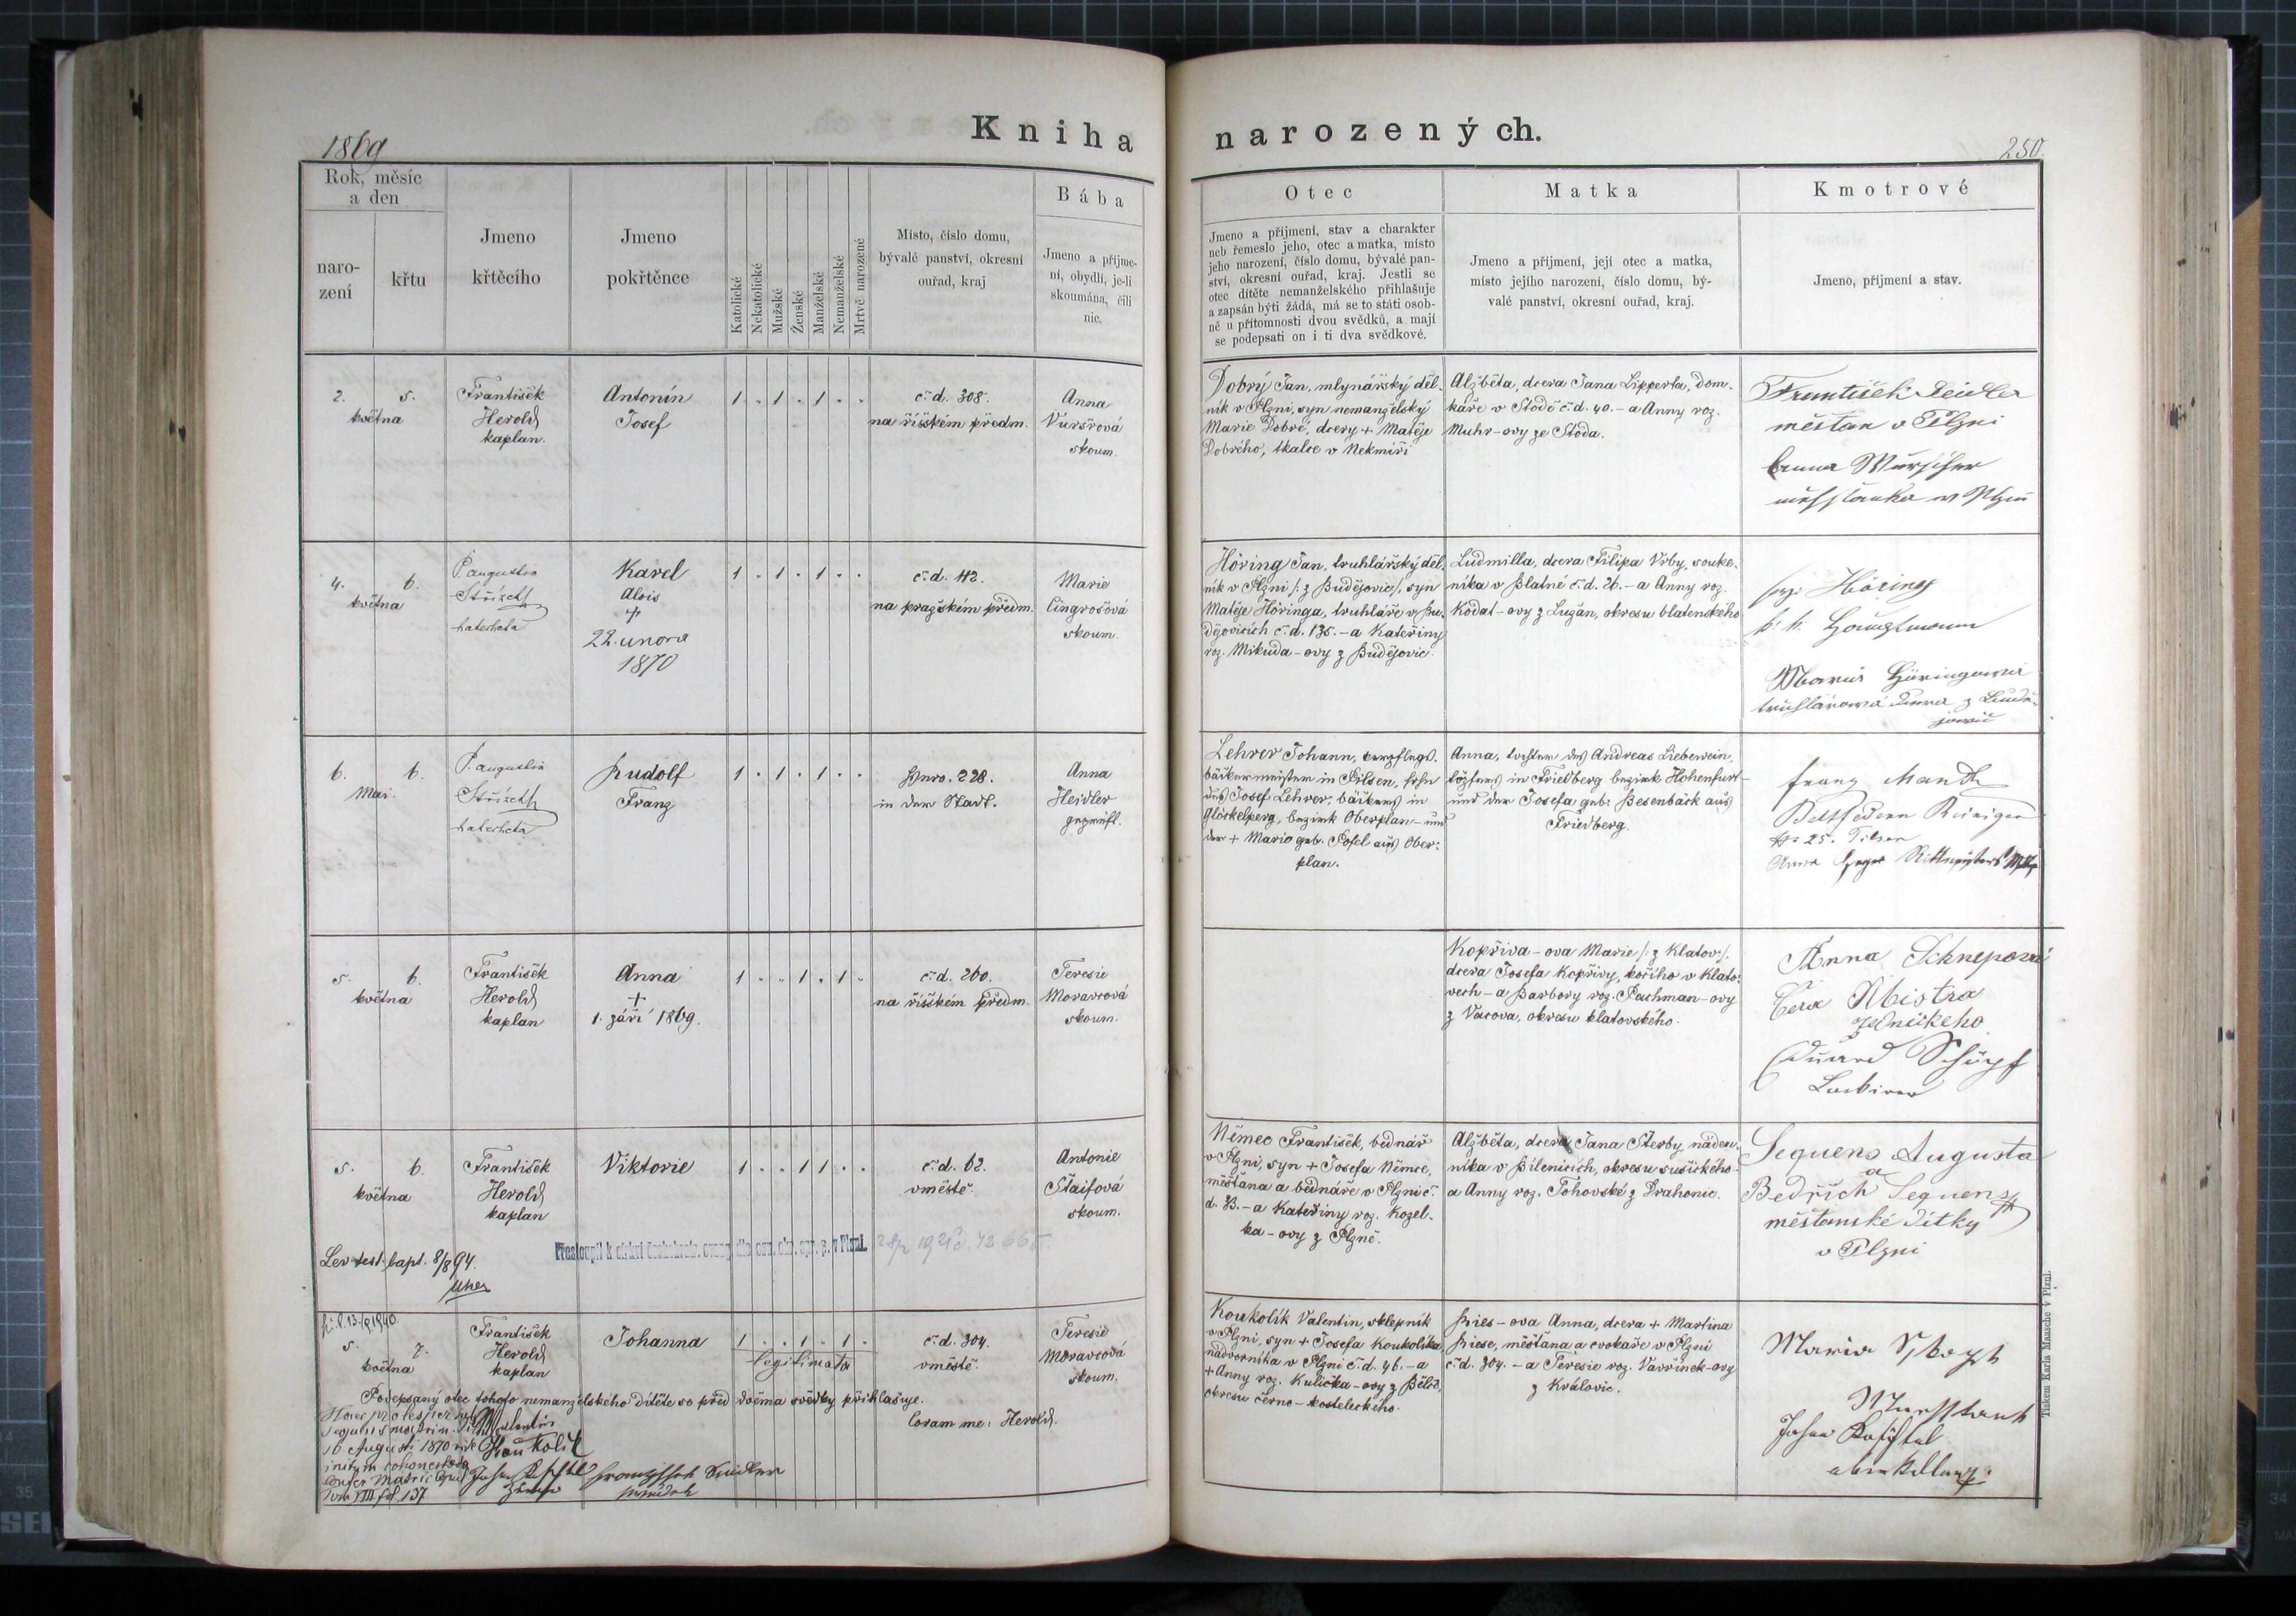 Kniha narozených.
1869
250.
Rok, měsíc
a den
naro-
zení
křtu
Jmeno
křtěcího
Jmeno
pokřtěnce
Katolické
Nekatolické
Mužské
Ženské
Manželské
Nemanželské
Mrtvě narozené
Místo, číslo domu,
bývalé panství, okresní
ouřad, kraj
Bába
Jmeno a příjme-
ní, obydlí, je-li
skoumána, čili
nic.
Otec
Jmeno a příjmení, stav a charakter
neb řemeslo jeho, otec a matka, místo
jeho narození, číslo domu, bývalé pan-
ství, okresní ouřad, kraj. Jestli se
otec dítěte nemanželského přihlašuje
a zapsán býti žádá, má se to státi osob-
ně u přítomnosti dvou svědků, a mají
se podepsati on i ti dva svědkové.
Matka
Jmeno a příjmení, její otec a matka,
místo jejího narození, číslo domu, bý-
valé panství, okresní ouřad, kraj.
Kmotrové
Jmeno, příjmení a stav.
2. 5.
května
František
Herold
kaplan.
Antonín
Josef
1 . 1 . 1 . .
č. d. 308.
na říšském předm.
Anna
Vuršřová
skoum.
Dobrý Jan, mlynářský děl-
ník v Plzni, syn nemanželský
Marie Dobré, dcery + Matěje
Dobrého, tkalce v Nekmíři
Alžběta, dcera Jana Lipperta, dom-
káře v Stodě č. d. 40. - a Anny roz.
Muhr-ovy ze Stoda.
František Seidler
měštan v Plzni
Anna
4. 6.
května
P. Augustin
Střízek
katecheta
Karel
Alois
+
22. unora
1870
1 . 1 . 1 . .
č. d. 42.
na pražském předm.
Marie
Cingrošová
skoum.
Höring Jan, truhlářský děl-
ník v Plzni /: z Budějovic :/, syn
Matěje Höringa, truhláře v Bu-
dějovicích č. d. 135. - a Kateřiny
roz. Mikuda-ovy z Budějovic.
Ludmilla, dcera Filipa Vrby, souke-
níka v Blatné č. d. 26. - a Anny roz.
Kodat-ovy z Lužan, okresu blatenského
Höring
k. k. Hauptmann
Höringowa
truhlárowá z Budě-
jowic
6. 6.
Mai.
P. Augustin
Střízek
katecheta
Rudolf
Franz
1 . 1 . 1 . .
Hnro. 228.
in der Stadt.
Anna
Heidler
geprüft.
Lehrer Johann,
bäckermeister in Pilsen, sohn
des Josef Lehrer, bäckers in
Glöckelperg, bezirk Oberplan - und
der + Marie geb. Pofel aus Ober-
plan.
Anna, tochter des Andreas Lieberwein,
töpfers in Friedberg bezirk Hohenfurt -
und der Josefa geb. Besenbäck aus
Friedberg.
Franz
Bettfedern Reiniger
N. 25. Pilsen
Anna
5. 6.
května
František
Herold
kaplan
Anna
+
1. září 1869.
1 . . 1 . 1 .
č. d. 260.
na říšském předm.
Teresie
Moravcová
skoum.
Kopřiva-ova Marie /: z Klatov :/
dcera Josefa Kopřivy, kočího v Klato-
vech - a Barbory roz. Pachman-ovy
z Vacova, okresu klatovského.
Anna
Cera Mistra
zednickeho
5. 6.
května
František
Herold
kaplan
Viktorie
1 . . 1 1 . .
č. d. 62.
v městě.
Antonie
Štaifová
skoum.
Němec František, bednář
v Plzni, syn + Josefa Němce,
měšťana a bednáře v Plzni č.
d. 13. - a Kateřiny roz. Kozel-
ka-ovy z Plzně.
Alžběta, dcera Jana Šterby, náden-
níka v Bílenicích, okresu sušického -
a Anny roz. Tohovské z Drahonic.
Sequens Augusta
a
Bedřich Sequens
měštanské dítky
v Plzni
Lev. test. bapt. 8/8 94.
Přestoupil k církvi českobratr. evang.
5. 7.
května
František
Herold
kaplan
Johanna
1 . . 1 . 1 .
legitimata
č. d. 304.
v městě.
Teresie
Moravcová
skoum.
Koukolík Valentin, sklepník
v Plzni, syn + Josefa Koukolíka,
nádvorníka v Plzni č. d. 46. - a
+ Anny roz. Kulička-ovy z Bělče,
okresu černo-kosteleckého.
Ries-ova Anna, dcera + Martina
Riese, měšťana a cvokaře v Plzni
č. d. 304. - a Teresie roz. Vavřinek-ovy
z Královic.
Maria
Podepsaný otec tohoto nemanželského dítěte se před dvěma svědky přihlašuje.
Coram me: Herold.
Valentin
Koukolík
16 Augusti 1870
fol 137
Tiskem Karla Maascho v Plzni.